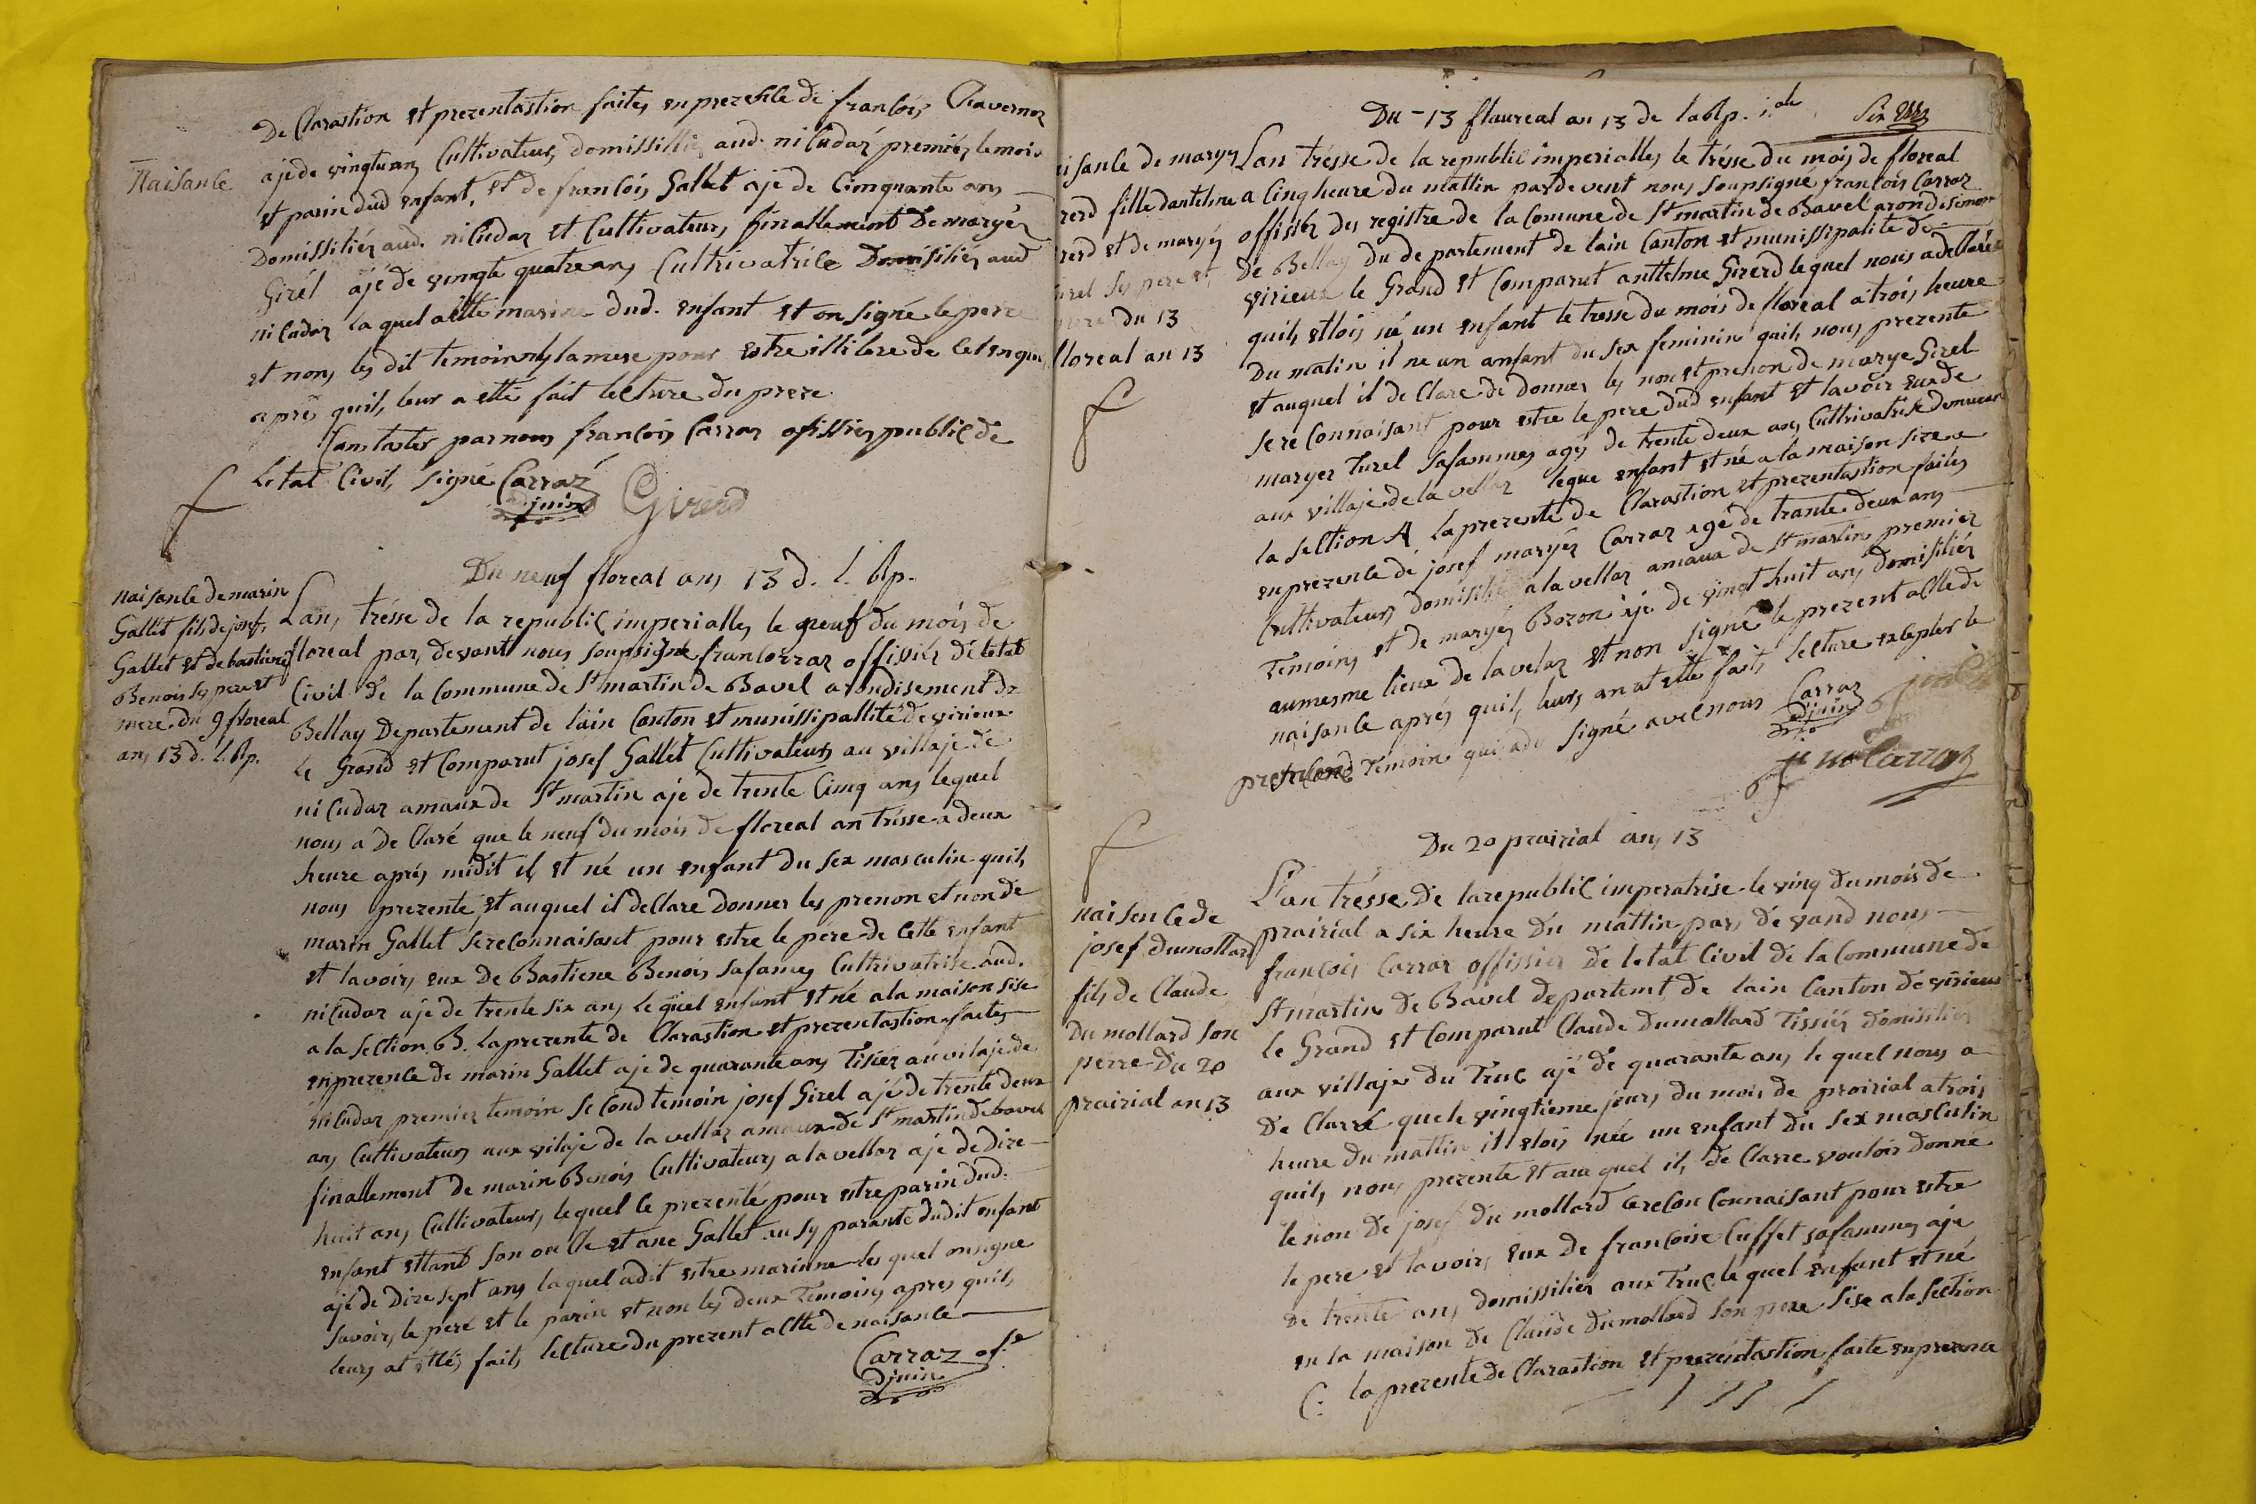 De Clarastion et prezentastion faites en prezence de francois Chavernoz
Naisance
ajé de vingtunans Cultivateurs domissilliés aud. nicudaz premier temois
et parin dud enfant, et de francois Gallet ajé de Cimquante ans
Domissiliéz aud. nicudaz et Cultivateurs finallement de maryéz
Girél ajé de vingte quatreans Cultrivatrice Domisiliez aud
nicudaz la quel a ette marine dud. enfant et on signé le perre
et nons les dit temoins ny la mere pour estre illitere de
apré quil, leur a etté fait lecture du prere
Constaster par nous francois Carraz ofissies public de
Letat Civil, signé Carraz
adjuin Girerd
Du neuf floreal ans 13 d. l. Rp.
naisance de marin
Gallet fils de josef,
Gallet et de bastiene
Benois ses pere et
mere du 9 floreal
ans 13 d. l. Rp.
Lans trésse de la republic imperialles le neuf du mois de
floreal par, devant nous soupsigné francorraz offissiéz de letat
Civil de la Commune de St martin de Bavel arondisement de
Bellay Departement de lain Canton et munissipallité de virieux
le Grand et Comparut josef Gallet Cultivateurs au villaje de
nicudaz amaux de St martin ajé de trente Cinq ans lequel
nous a de Claré que le neuf du mois de floreal an trésse a deux
heure aprés midit il et né un enfant du sex masculin quil,
nous prezente et auquel il declare donner les prenon et non de
marin Gallet se reconnaisant pour estre le pere de cette enfant
et lavoirs eux de Bastiene Benois safames Cultrivatrise aud.
nicudaz aje de trente six ans le quel enfant et né a la maison sise
a la section B. la prezente de Clarastion et prezentastion faites
en prezence de marin Gallet aje de quarante ans Tisiez au vilaje de
nicudaz premier temoin second temoin josef Girel ajé de trente deux
ans Cultivateurs aux vilaje de la vellaz amaux de St martin de bavel
finallement de marin Benois Cultivateurs a lavellaz aje de dize
huit ans Cultivateurs lequel ce prezenté pour estre parin dud.
enfant ettant son oncle et ane Gallet ausy parante dudit enfant
ajé de Dize sept ans laquel adit estre marinne les quel onsigne
savoirs le peré et le parin et non les deux Temoins apres quil,
leurs at ettés fait, lecture du prezent actte de naisance
Carraz of.er
adjuin
Du 13 flaureal an 13 de la Rp. i.ale
Six
isance de maryes
rerd fille dantelme
rerd et de maryés
urel ses pere et
mere du 13
floreal an 13
Lan trésse de la republic imperialles le trésse du mois de floreal
a cinq heure du mattin pardevent nous soupsigné francois Carraz
offisiez des registre de la Comune de St martin de Bavel arondisiment
De Bellay du de partement de lain Canton et munissipalite de
virieux le Grand et Comparut anttelme Girerd lequel nous a declaré
quil, ettois né un enfant le tresse du mois de floreal a troi, heure
Du matin il ne un anfant du sex feminin quil, nous prezente
et auquel il de Clare de donner les non et prenon de marye Girel
se re connaisant pour estre le pere dud enfant et lavoir eux de
maryes Turel safammes agés de trente deux ans Cultrivatrise demeurant
aux villaje de la vellaz leque enfant et né a la maison size a
la section A la prezente de Clarastion et prezentastion faites
en prezence de josef maryéz Carraz agé de trante deux ans
Cultivateurs domisilié a la vellaz amaux de St martin premier
Temoins et de maryés Bozon ajé de vingt huit ans domisiliés
aumesme lieux de la velaz et non signé le prezent actte de
naisance aprés quil, leurs an at etté fait, lecture excepter le
Temoin qui a du signé avec nous Carraz
adjuin
Du 20 prairial ans 13
naisence de
josef dumollard
fils de Claude
Du mollard son
perre du 20
prairial an 13
L'an trésse de la republic imperatrise le ving du mois de
prairial a six heure du mattin pars de vand nous
francois Carraz offissies de letat Civil de la Commune de
St martin de Bavel departemt de lain Canton de virieux
le Grand et Comparut Claude dumollard Tissiéz domisiliés
aux villajes du Truc ajé de quarante ans le quel nous a
de Clarré que le vingtieme jours du mois de prairial a trois
heure du mattin il etois née un enfant du sex masculin
quil, nous prezente et au quel il, de Clarre vouloir donné
le non de josef du mollard ce recon connaisant pour estre
le pere et lavoirs eux de francoise Cuffet safammes aje
de trente ans domissiliéz aux Truc le quel enfant et né
en la maison de Claude dumollard son pere size a la section
C: la prezente de Clarastion et prezentastion faite en prezence